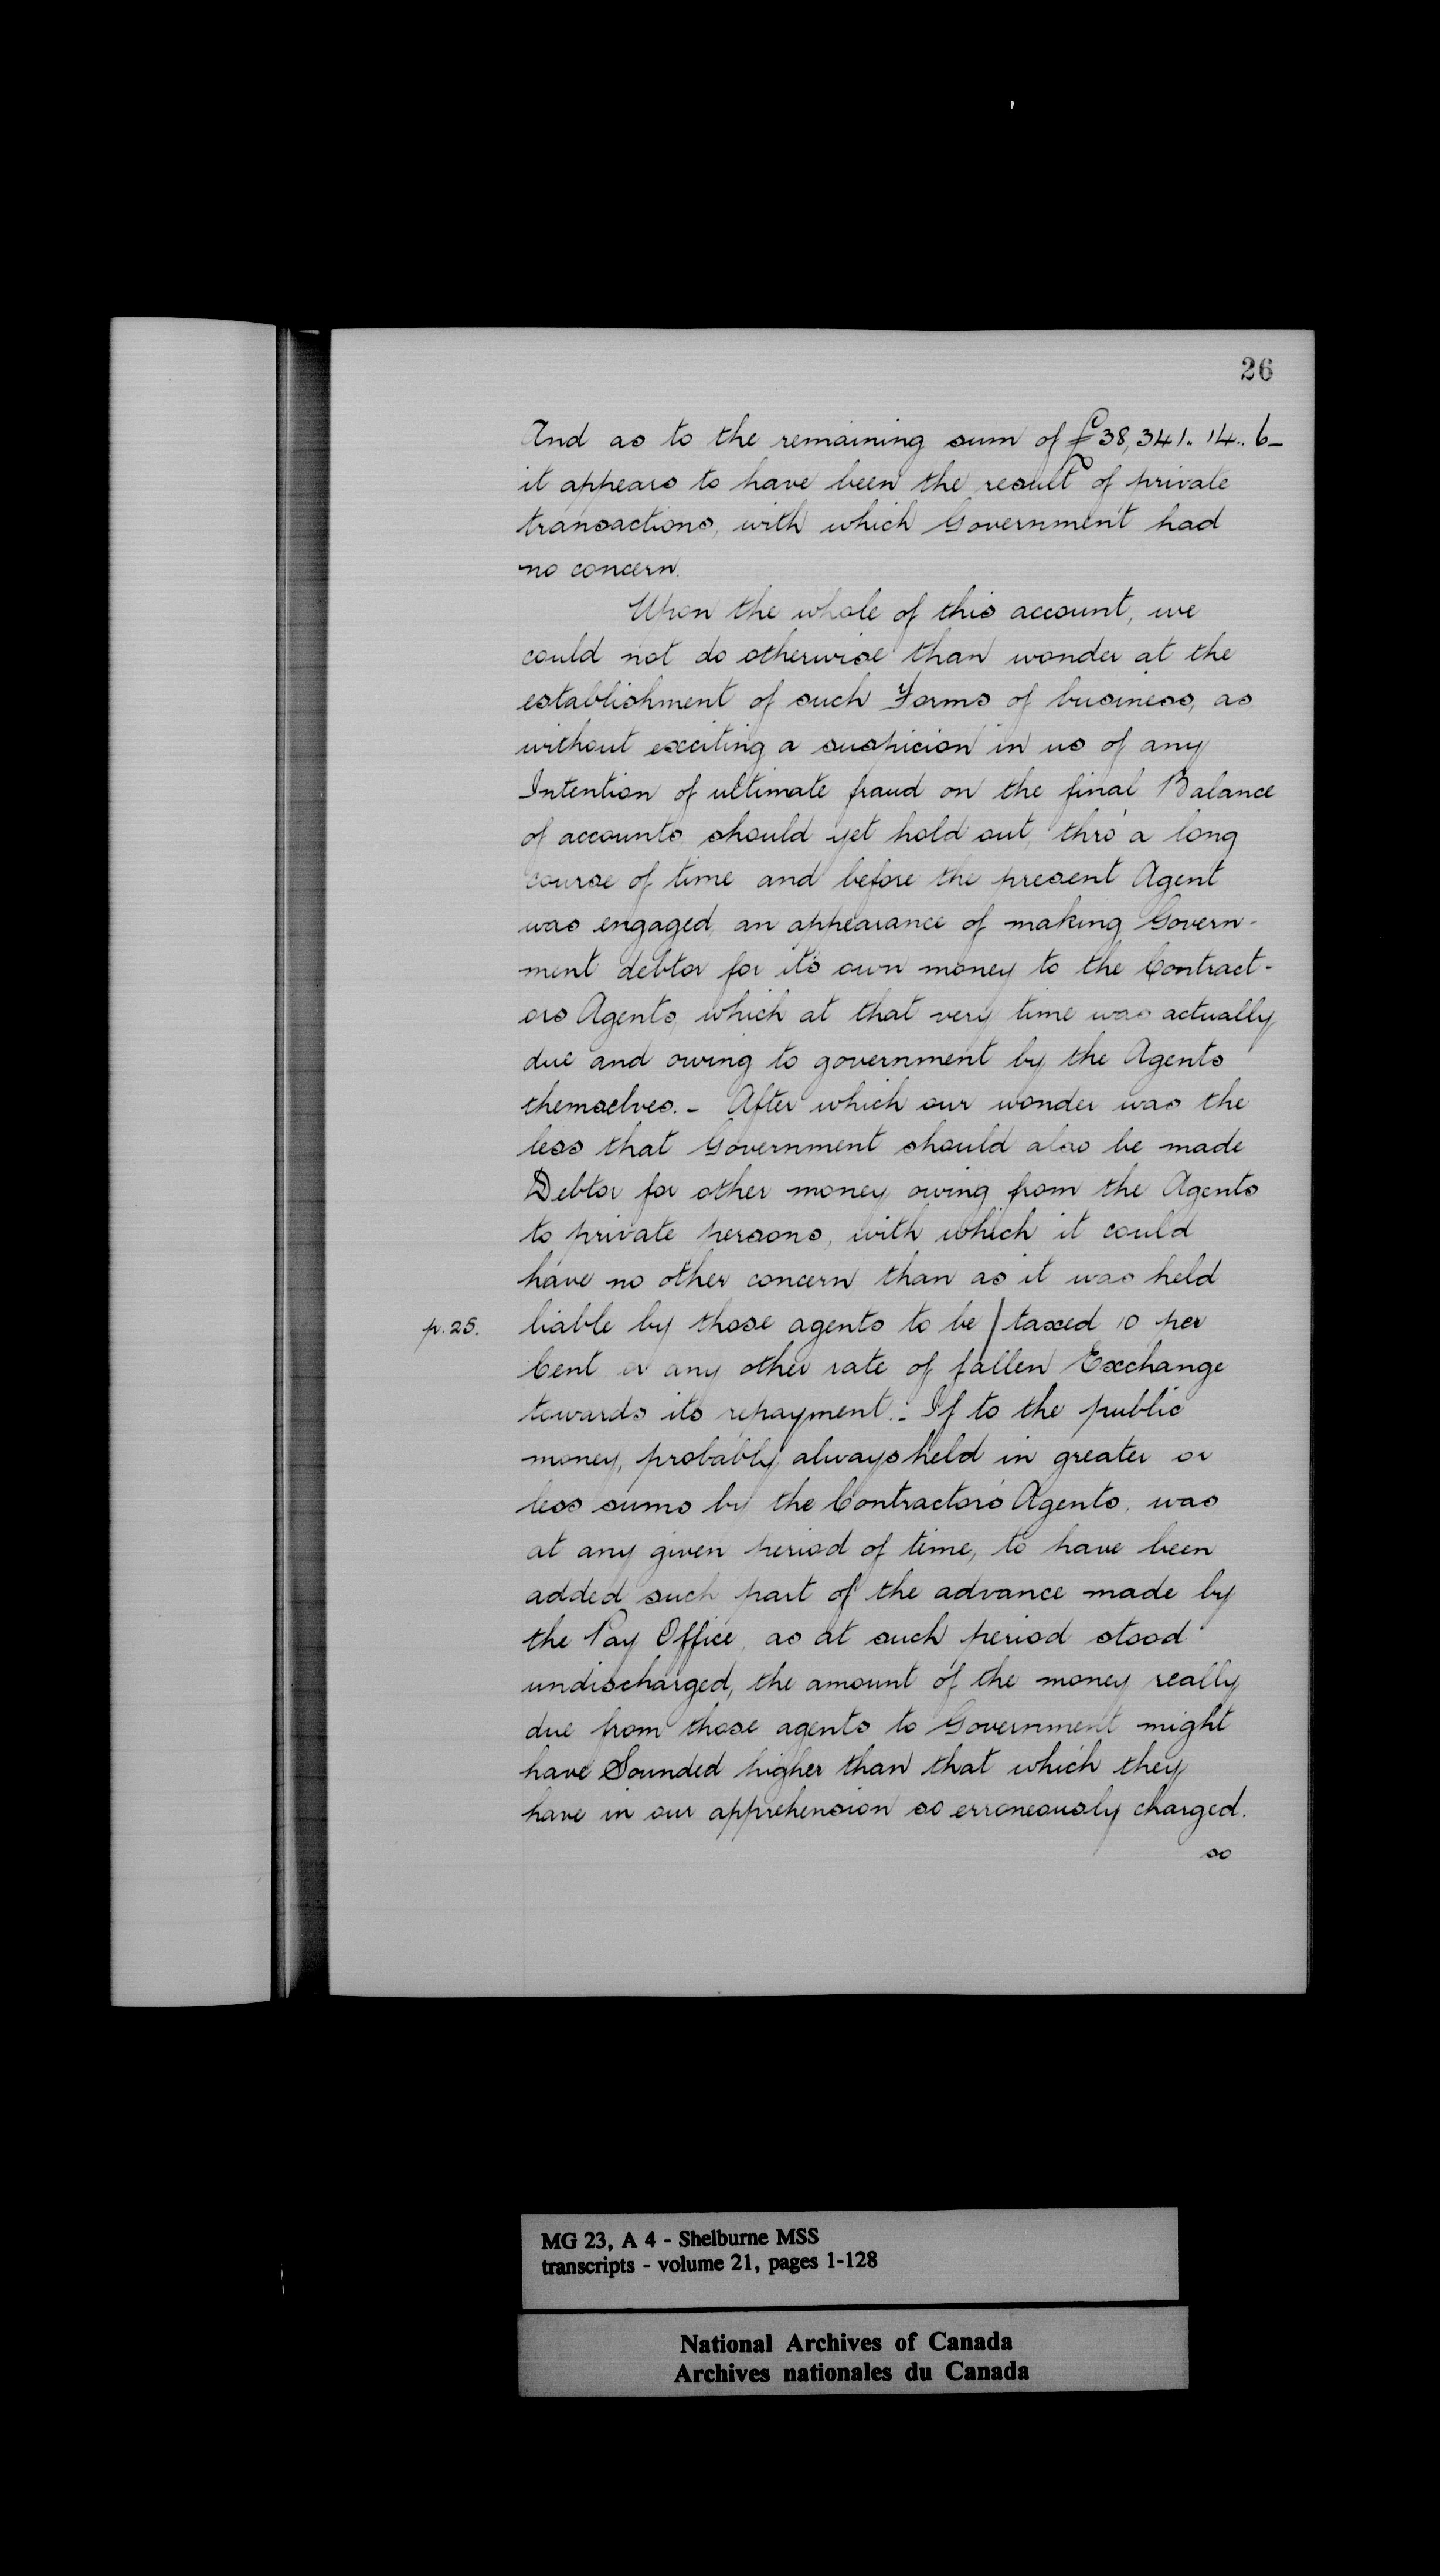 26
And as to the remaining sum of £38,341.. 14.. 6_
it appears to have been the result of private
transactions, with which Government had
no concern.
Upon the whole of this account, we
could not do otherwise than wonder at the
establishment of such Forms of business, as
without exciting a suspicion in us of any
Intention of ultimate fraud on the final Balance
of accounts, should yet hold out, thro' a long
course of time and before the present Agent
was engaged, an appearance of making Govern-
ment debtor for it's own money to the Contract-
ors Agents, which at that very time was actually
due and owing to government by the Agents
themselves. _ After which our wonder was the
less that Government should also be made
Debtor for other money owing from the Agents
to private persons, with which it could
have no other concern than as it was held
p. 25. liable by those agents to be / taxed 10 per
Cent or any other rate of fallen Exchange
towards its repayment. _ If to the public
money, probably always held in greater or
less sums by the Contractors Agents, was
at any given period of time, to have been
added such part of the advance made by
the Pay Office, as at such period stood
undischarged, the amount of the money really
due from those agents to Government might
have Sounded higher than that which they
have in our apprehension so erroneously charged.
so
MG 23, A 4 - Shelburne MSS
transcripts - volume 21, pages 1-128
National Archives of Canada
Archives nationales du Canada